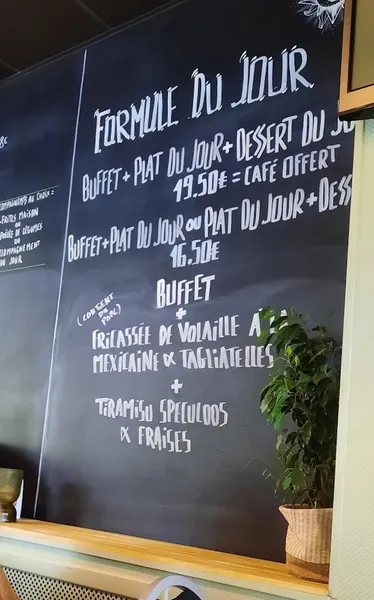 FORMULE DU JOUR
BUFFET + PLAT DU JOUR + DESSERT DU
19.50€ = CAFÉ OFFERT
BUFFET + PLAT DU JOUR OU PLAT DU JOUR + DESS
16.50€
BUFFET
+
(CONTIENT DU PORC)
FRICASSÉE DE VOLAILLE À LA
MEXICAINE & TAGLIATELLES
+
TIRAMISU SPECULOOS
& FRAISES
AU CHOIX =
FRITES MAISON
OU
POÊLÉE DE LÉGUMES
OU
ACCOMPAGNEMENT
DU JOUR